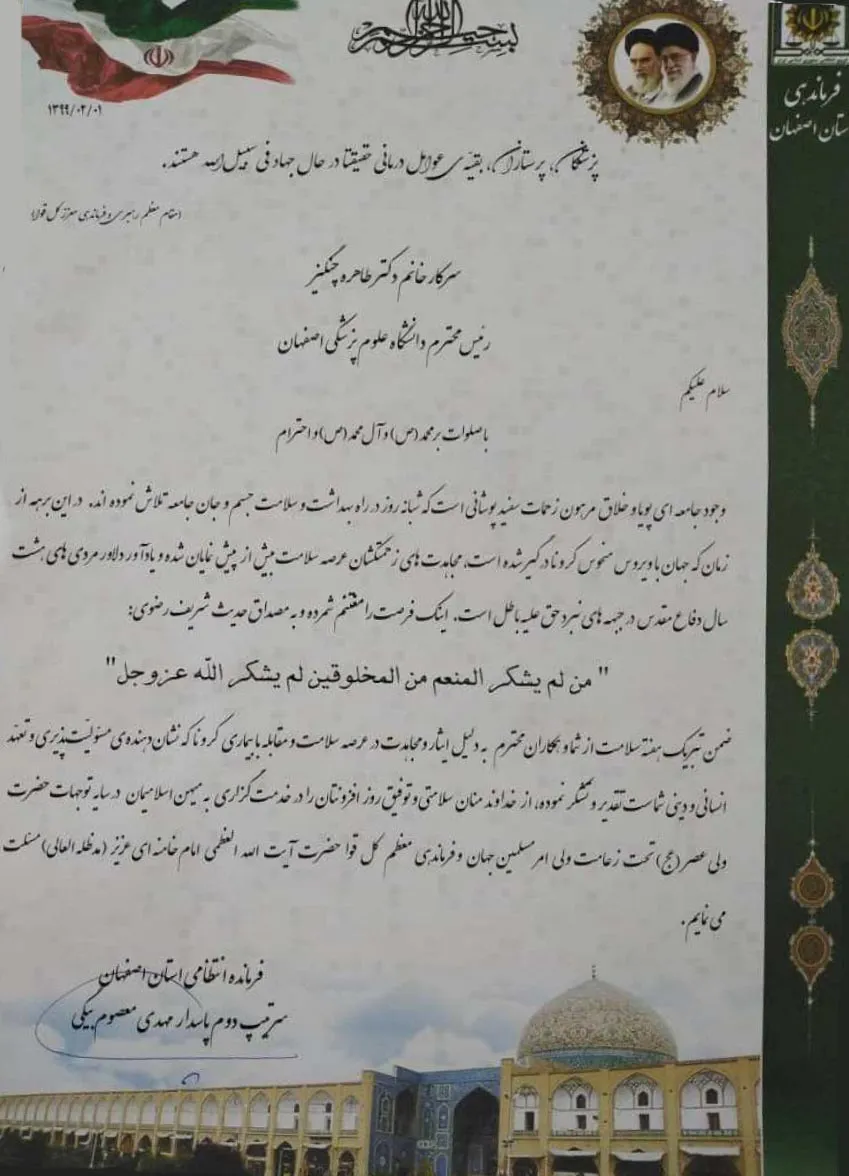 بسم الله الرحمن الرحیم
فرماندهی
ستان اصفهان
۱۳۹۹/۰۲/۰۱
پزشکان، پرستاران، بقیه‌ی عوامل درمانی حقیقتا در حال جهاد فی سبیل الله هستند.
(مقام معظم رهبری و فرماندهی معزز کل قوا)
سرکار خانم دکتر طاهره چنگیز
رئیس محترم دانشگاه علوم پزشکی اصفهان
سلام علیکم
با صلوات بر محمد (ص) و آل محمد (ص) و احترام
وجود جامعه ای پویا و خلاق مرهون زحمات سفید پوشانی است که شبانه روز در راه بهداشت و سلامت جسم و جان جامعه تلاش نموده اند. در این برهه از
زمان که جهان با ویروس منحوس کرونا درگیر شده است، مجاهدت های زحمتکشان عرصه سلامت بیش از پیش نمایان شده و یادآور دلاور مردی های هشت
سال دفاع مقدس در جبهه های نبرد حق علیه باطل است. اینک فرصت را مغتنم شمرده و به مصداق حدیث شریف رضوی:
" من لم یشکر المنعم من المخلوقین لم یشکر اللّه عزوجل"
ضمن تبریک هفته سلامت از شما و همکاران محترم به دلیل ایثار و مجاهدت در عرصه سلامت و مقابله با بیماری کرونا که نشان دهنده ی مسئولیت پذیری و تعهد
انسانی و دینی شماست تقدیر و تشکر نموده، از خداوند منان سلامتی و توفیق روز افزونتان را در خدمت گزاری به میهن اسلامیمان در سایه توجهات حضرت
ولی عصر (عج) تحت زعامت ولی امر مسلمین جهان و فرماندهی معظم کل قوا حضرت آیت الله العظمی امام خامنه ای عزیز (مدظله العالی) مسئلت
می نمایم.
فرمانده انتظامی استان اصفهان
سرتیپ دوم پاسدار مهدی معصوم بیگی